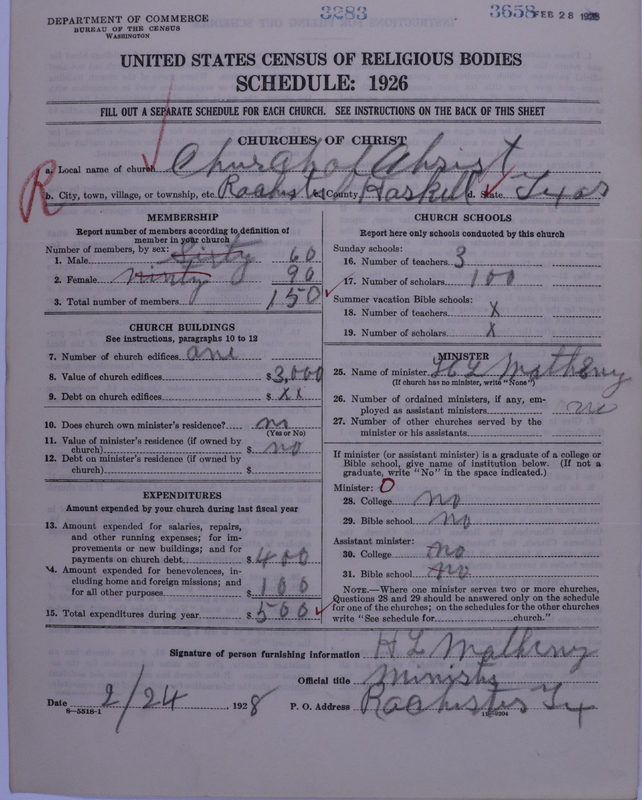 DEPARTMENT OF COMMERCE
BUREAU OF THE CENSUS
WASHINGTON
3283
3658
FEB 28 1928
UNITED STATES CENSUS OF RELIGIOUS BODIES
SCHEDULE: 1926
FILL OUT A SEPARATE SCHEDULE FOR EACH CHURCH. SEE INSTRUCTIONS ON THE BACK OF THIS SHEET
CHURCHES OF CHRIST
a. Local name of church Church of Christ
R
b. City, town, village, or township, etc. Rochester c. County Haskell d. State Texas
MEMBERSHIP
Report number of members according to definition of
member in your church
Number of members, by sex:
1. Male Sixty 60
2. Female ninty 90
3. Total number of members 150
CHURCH BUILDINGS
See instructions, paragraphs 10 to 12
7. Number of church edifices one
8. Value of church edifices $3,000
9. Debt on church edifices $ xx
10. Does church own minister's residence? no
(Yes or No)
11. Value of minister's residence (if owned by
church) $ no
12. Debt on minister's residence (if owned by
church) $
EXPENDITURES
Amount expended by your church during last fiscal year
13. Amount expended for salaries, repairs,
and other running expenses; for im-
provements or new buildings; and for
payments on church debt $400
14. Amount expended for benevolences, in-
cluding home and foreign missions; and
for all other purposes $100
15. Total expenditures during year $500
CHURCH SCHOOLS
Report here only schools conducted by this church
Sunday schools:
16. Number of teachers 3
17. Number of scholars 100
Summer vacation Bible schools:
18. Number of teachers x
19. Number of scholars x
MINISTER
25. Name of minister H L Matheny
(If church has no minister, write "None")
26. Number of ordained ministers, if any, em-
ployed as assistant ministers no
27. Number of other churches served by the
minister or his assistants
If minister (or assistant minister) is a graduate of a college or
Bible school, give name of institution below. (If not a
graduate, write "No" in the space indicated.)
Minister: O
28. College no
29. Bible school no
Assistant minister:
30. College no
31. Bible school no
NOTE.—Where one minister serves two or more churches,
Questions 28 and 29 should be answered only on the schedule
for one of the churches; on the schedules for the other churches
write "See schedule for church."
Signature of person furnishing information H L Matheny
Official title Minister
Date 2/24 1928 P. O. Address Rochester Tx
8-5518-1